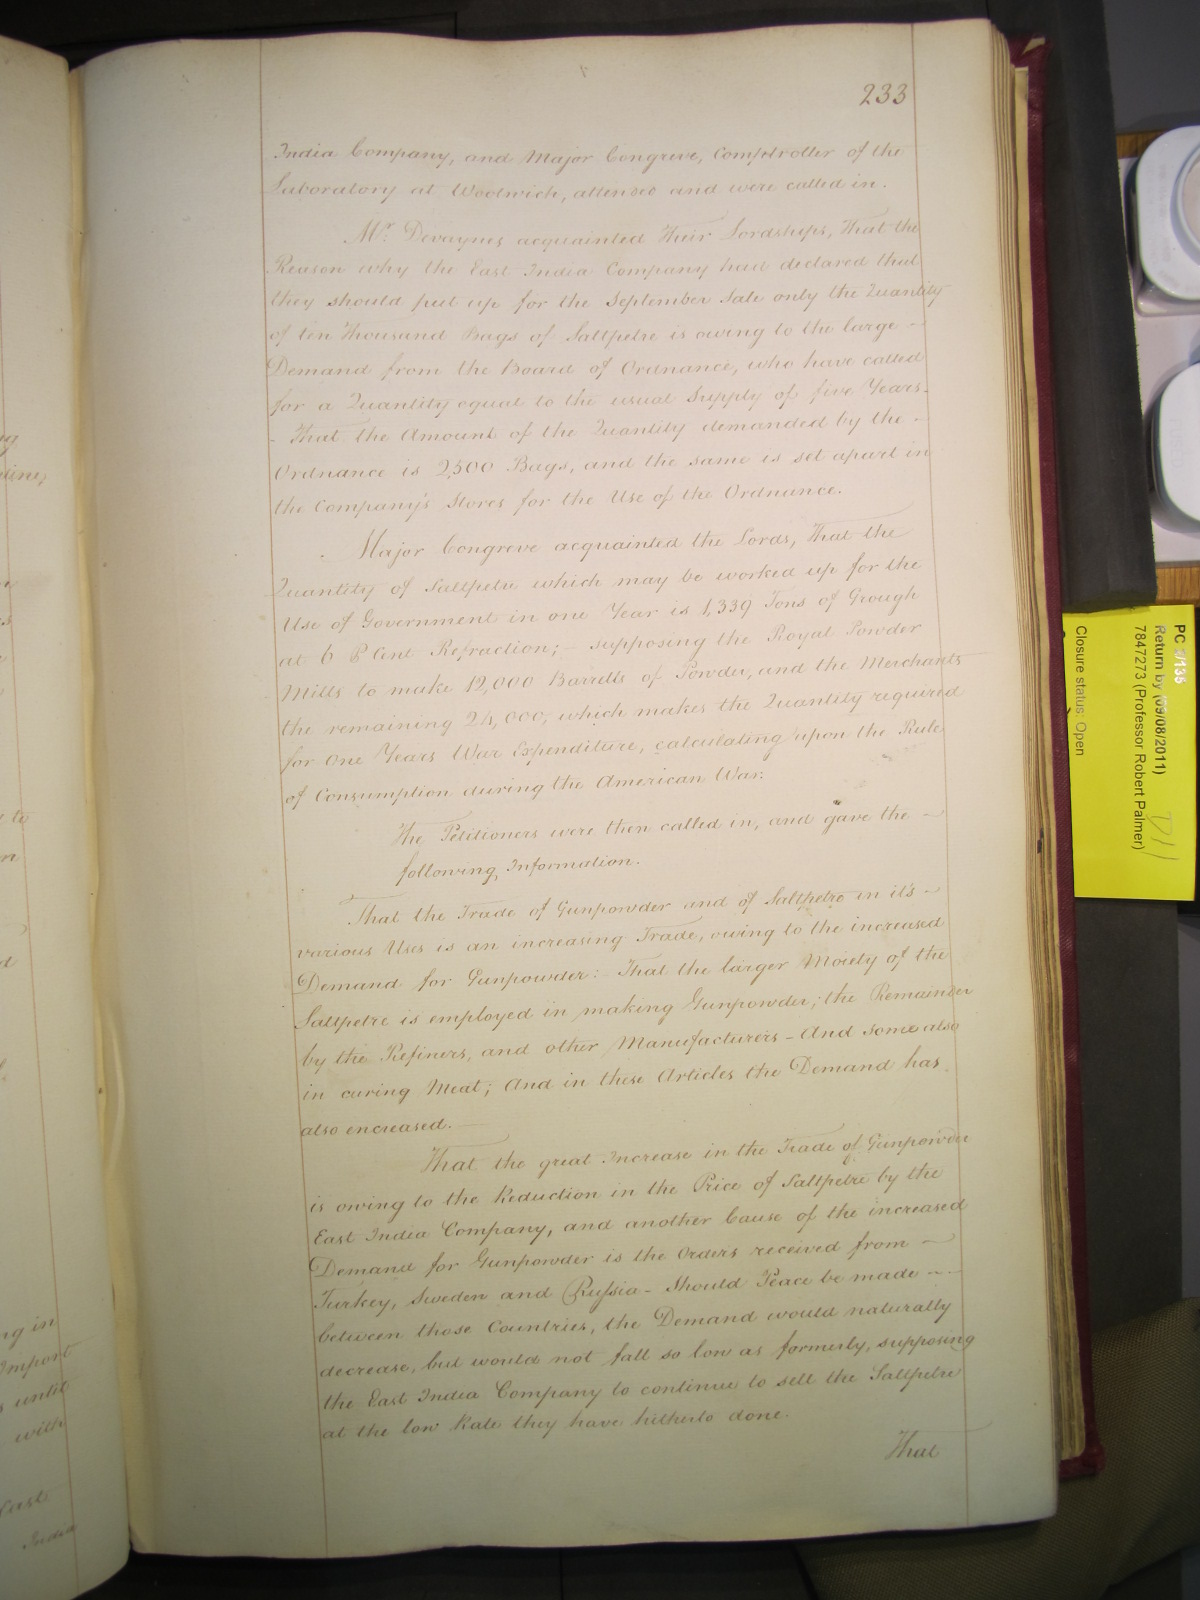 233
India Company, and Major Congreve, Comptroller of the
Laboratory at Woolwich, attended and were called in.
Mr. Devaynes acquainted Their Lordships, That the
Reason why the East India Company had declared that
they should put up for the September Sale only the Quantity
of ten Thousand Bags of Saltpetre is owing to the large
Demand from the Board of Ordnance, who have called
for a Quantity equal to the usual Supply of five Years.
- That the Amount of the Quantity demanded by the -
Ordnance is 2,500 Bags, and the same is set apart in
the Company's Stores for the Use of the Ordnance.
Major Congreve acquainted the Lords, That the
Quantity of Saltpetre which may be worked up for the
Use of Government in one Year is 1,339 Tons of Grough
at 6 P Cent Refraction; - supposing the Royal Powder
Mills to make 12,000 Barrells of Powder, and the Merchants
the remaining 24,000, which makes the Quantity required
for One Years War Expenditure, calculating upon the Rule
of Consumption during the American War.
The Petitioners were then called in, and gave the
following Information.
That the Trade of Gunpowder and of Saltpetre in it's
various Uses is an increasing Trade, owing to the increased
Demand for Gunpowder: That the larger Moiety of the
Saltpetre is employed in making Gunpowder; the Remainder
by the Refiners, and other Manufacturers - And some also
in curing Meat; And in these Articles the Demand has
also encreased.
That the great Increase in the Trade of Gunpowder
is owing to the Reduction in the Price of Saltpetre by the
East India Company, and another Cause of the increased
Demand for Gunpowder is the Orders received from
Turkey, Sweden and Russia - Should Peace be made
between those Countries, the Demand would naturally
decrease, but would not fall so low as formerly, supposing
the East India Company to continue to sell the Saltpetre
at the low Rate they have hitherto done.
That
ng in
Import
until
with
East
India
PC 2/135
Return by (09/08/2011)
7847273 (Professor Robert Palmer)
Closure status: Open